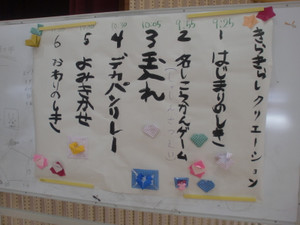 きらきらレクリエーション
9:25
1 はじまりのしき
9:35
2 名しこうかんゲーム
10:05
3 玉入れ
4 デカパンリレー
5 よみきかせ
6 おわりのしき